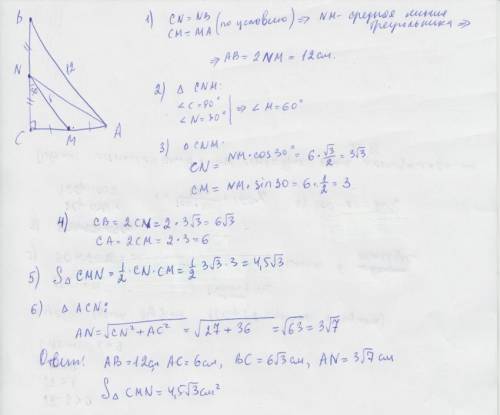 B
N
C
M
A
12
6
30°
1) CN = NB (по условию) ⇒ NM - средняя линия
CM = MA треугольника ⇒
⇒ AB = 2NM = 12 см.
2) △ CNM:
∠C = 90°
∠N = 30° | ⇒ ∠M = 60°
3) △ CNM:
CN = NM·cos30° = 6·√3/2 = 3√3
CM = NM·sin30 = 6·1/2 = 3
4) CB = 2CN = 2·3√3 = 6√3
CA = 2CM = 2·3 = 6
5) S△ CMN = 1/2·CN·CM = 1/2 3√3·3 = 4,5√3
6) △ ACN:
AN = √(CN² + AC²) = √(27 + 36) = √63 = 3√7
Ответ: AB = 12см AC = 6см, BC = 6√3 см, AN = 3√7 см
S△ CMN = 4,5√3 см²